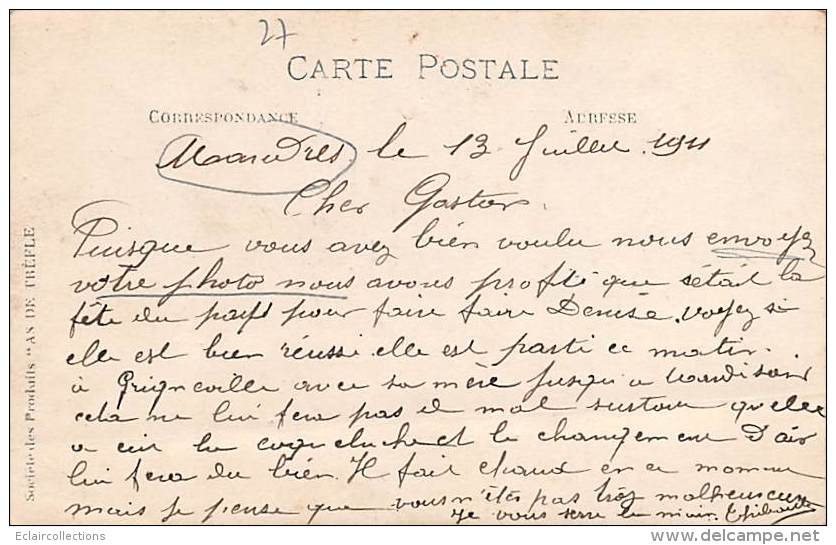 27
CARTE POSTALE
CORRESPONDANCE ADRESSE
Mandres le 13 Juillet 1911
Cher Gaston
Puisque vous avez bien voulu nous envoyez
votre photo nous avons profité que s'était la
fête du pays pour faire faire Denise. voyez si
elle est bien réussi. elle est parti ce matin
a Grigneville avec sa mère jusqu'a
cela ne lui fera pas de mal surtout quelle
a eu la coqueluche et le changement d'air
lui fera du bien. Il fait chaud en ce moment
mais je pense que vous n'êtes pas trop malheureux
je vous serre la main. Thibault
Société des Produits "AS DE TRÈFLE
Eclaircollections
delcampe.net